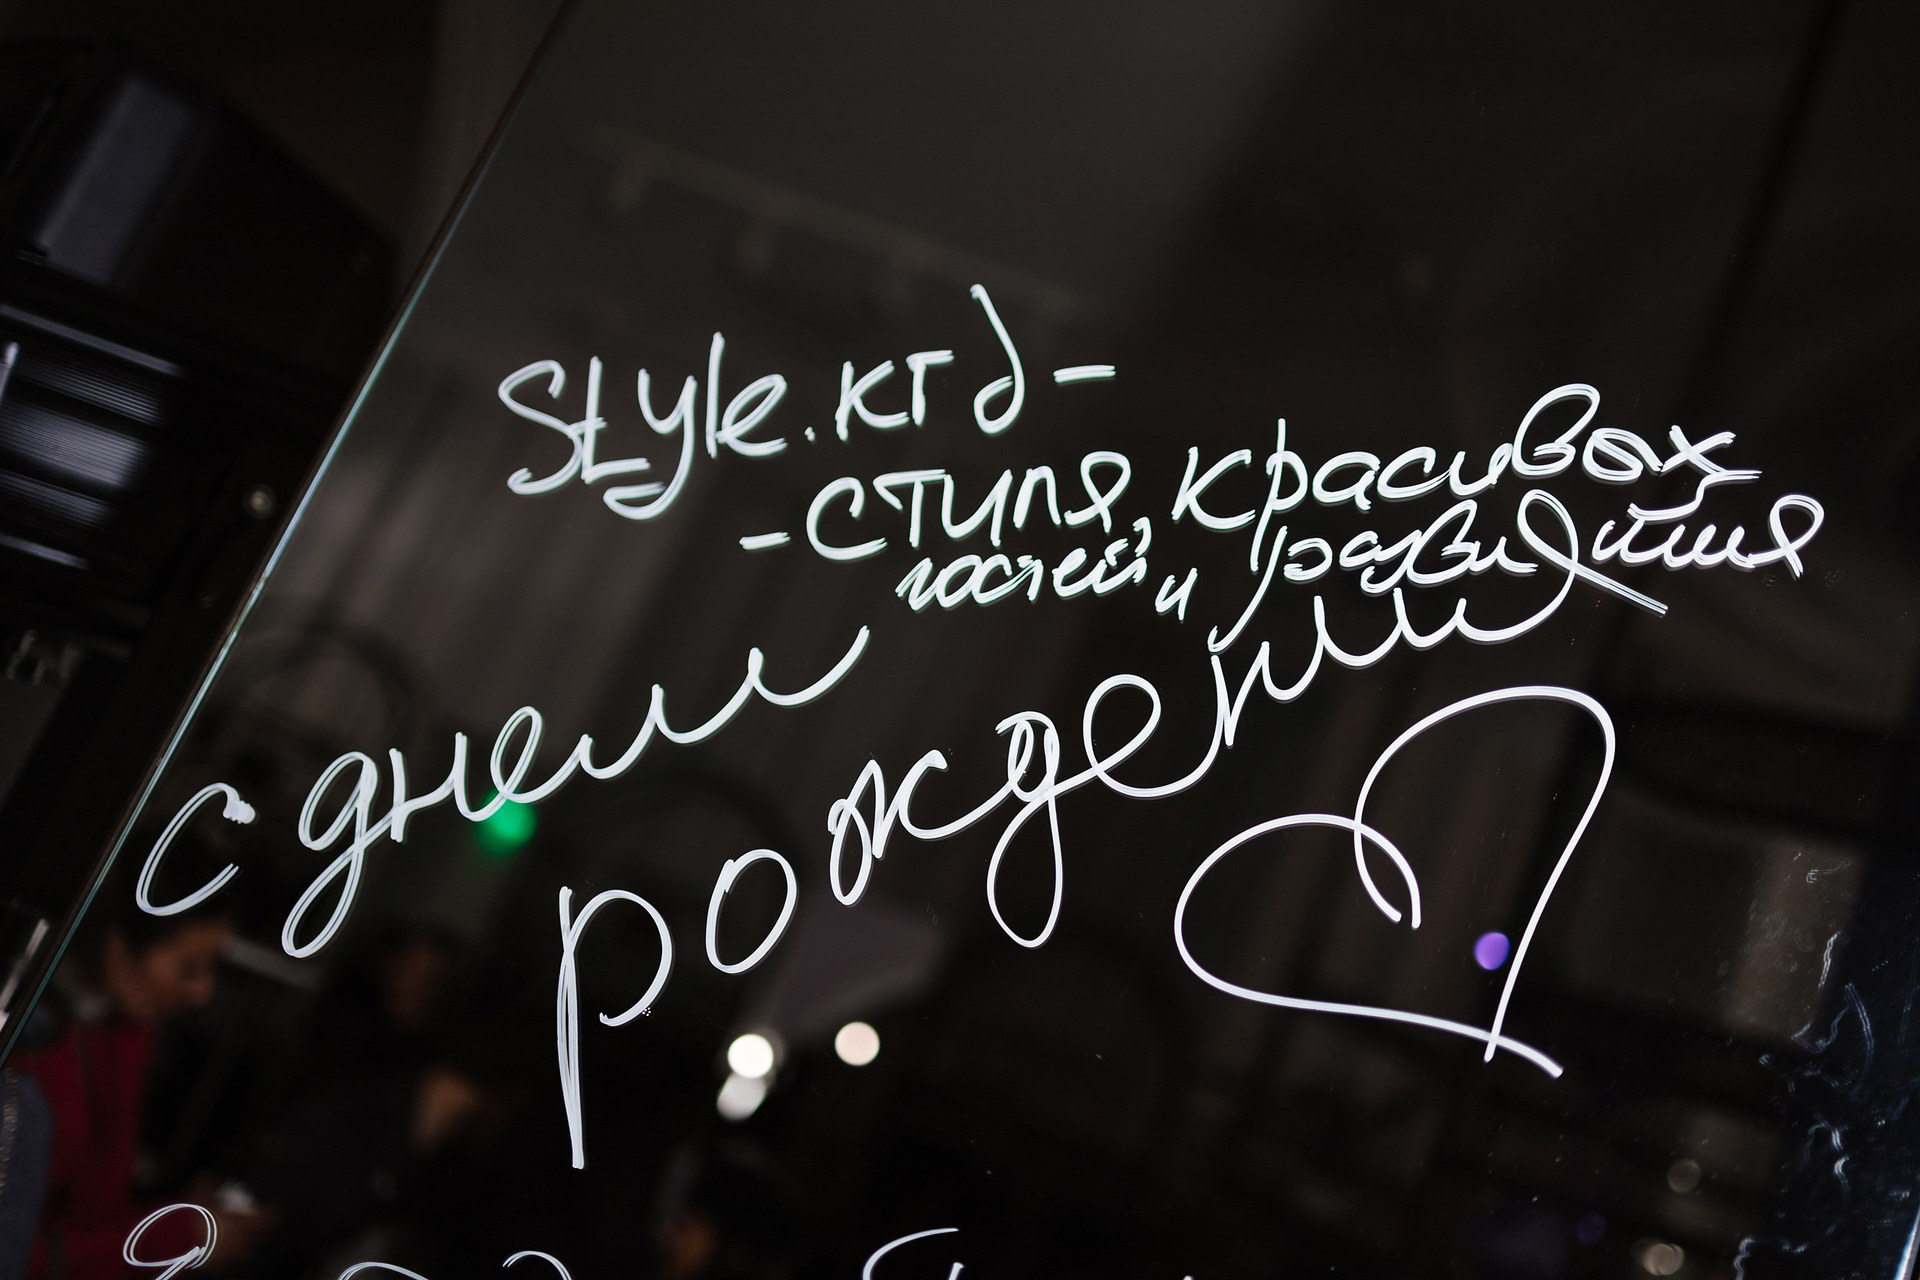 Style.кгд -
- стиля, красивых
гостей, и развития
с днем
рождения